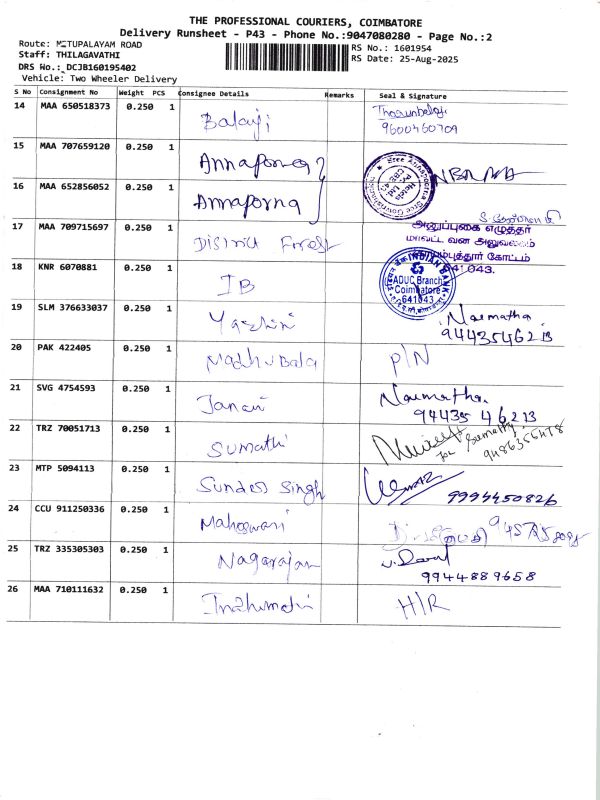 THE PROFESSIONAL COURIERS, COIMBATORE
Delivery Runsheet - P43 - Phone No.:9047080280 - Page No.:2
Route: METUPALAYAM ROAD
RS No.: 1601954
Staff: THILAGAVATHI
RS Date: 25-Aug-2025
DRS No.: DCJB160195402
Vehicle: Two Wheeler Delivery
S No Consignment No Weight PCS Consignee Details Remarks Seal & Signature
14 MAA 650518373 0.250 1 Balaji
9600460709
15 MAA 707659120 0.250 1 Annaporna
16 MAA 652856052 0.250 1 Annaporna
17 MAA 709715697 0.250 1 District Forest
அனுப்புகை எழுத்தர்
மாவட்ட வன அலுவலகம்
கோட்டம்
641 043.
18 KNR 6070881 0.250 1 IB
INDIAN BANK
ADUC Branch
Coimbatore
641043
19 SLM 376633037 0.250 1 Yazhini
9443546213
20 PAK 422405 0.250 1 Madhu Bala P/N
21 SVG 4754593 0.250 1 Janani
9443546213
22 TRZ 70051713 0.250 1 Sumathi
for Sumathy
9486356478
23 MTP 5094113 0.250 1 Sundar Singh
9994450826
24 CCU 911250336 0.250 1 Maheswari
25 TRZ 335305303 0.250 1 Nagarajan
9944889658
26 MAA 710111632 0.250 1 H/R